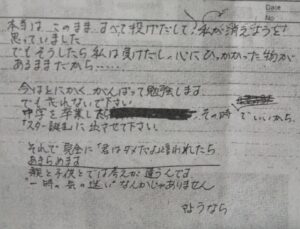 Date
No
本当は、このまま、すべて投げだして! 私が消えようと
思っていました
でもそうしたら私は負けだし。心にひっかかった物が
あるままだから......
今はとにかく、がんばって勉強します
でも忘れないで下さい
中学を卒業したら その時でいいから、
「スター誕生」に出させて下さい。
それで 完全に「君はダメだよ」と言われたら
あきらめます
親と子供とでは考えが違うんです
"一時の気の迷い"なんかじゃありません
さようなら